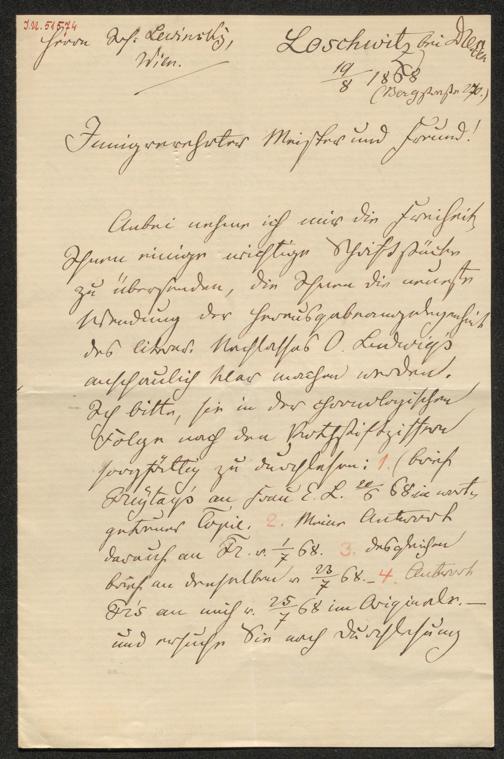 J.N. 51574
Herrn Jos: Lewinsky,
Wien.
Loschwitz bei Dresden
19/8 1868
(Bergstraße 270.)
Innigverehrter Meister und Freund!
Anbei nehme ich mir die Freiheit,
Ihnen einige wichtige Schriftstücke
zu übersenden, die Ihnen die neueste
Wendung der Herausgabeangelegenheit
des literar. Nachlasses O. Ludwigs
anschaulich klar machen werden.
Ich bitte, sie in der chronologischen
Folge nach den Rothstiftziffern
sorgfältig zu durchlesen: 1. (Brief
Freytag's an Frau E. L. 20/6 68 in wort-
getreuer Copie. 2. Meine Antwort
darauf an Fr. v. 1/7 68. 3. desgleichen
Brief an denselben v. 23/7 68. – 4. Antwort
Fr's an mich v. 25/7 68 im Originale. —
und ersuche Sie nach Durchlesung